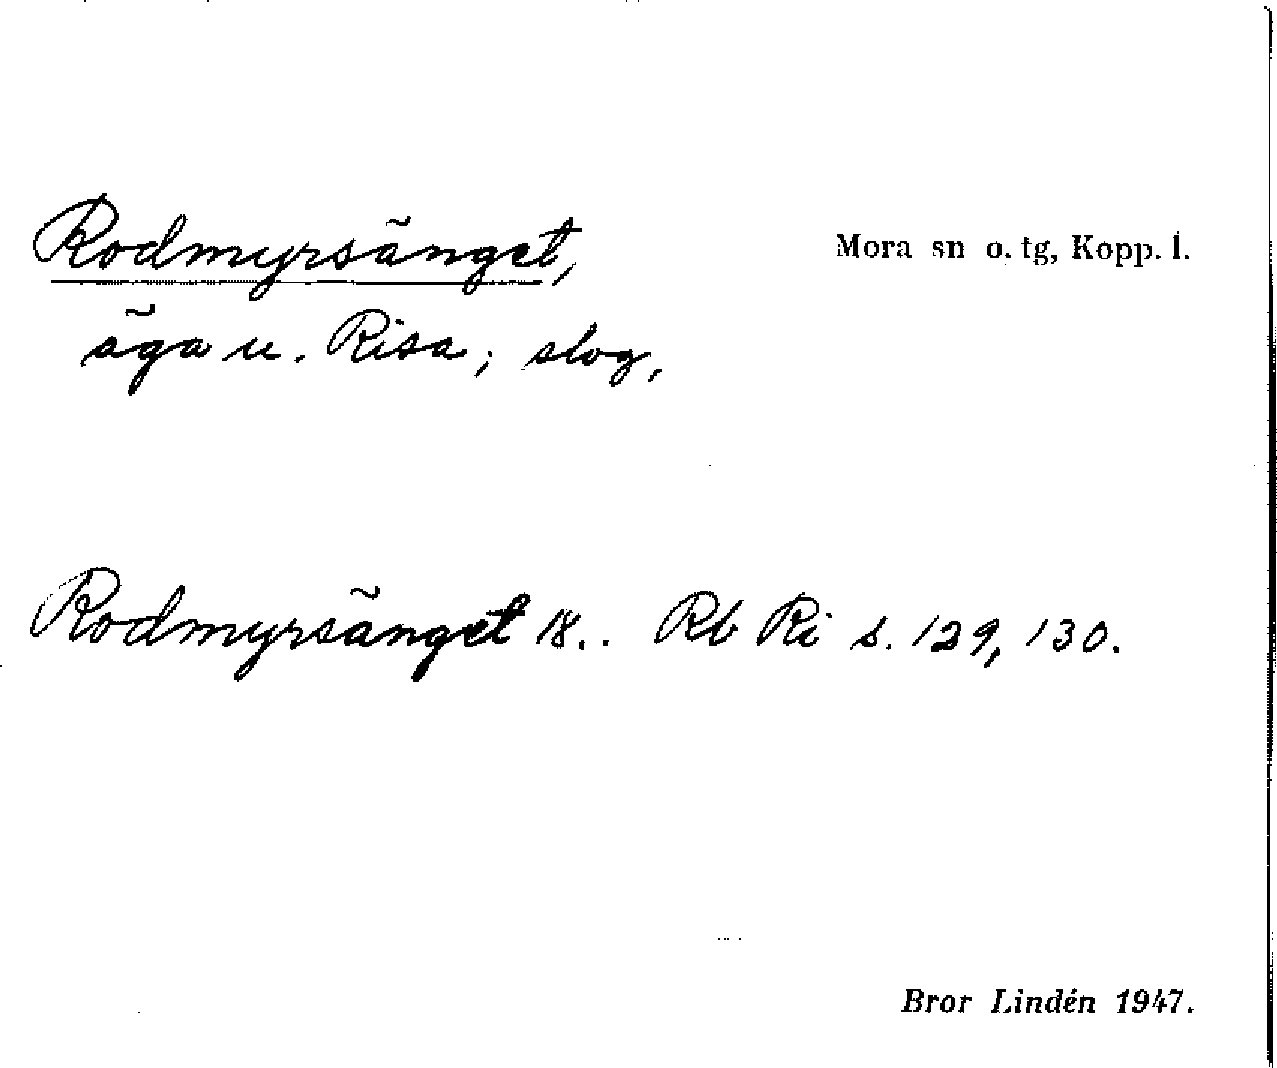 Rodmyrsänget,
Mora sn o. tg, Kopp. l.
äga u. Risa; slog.
Rodmyrsänget 18.. Rb Ri s. 129, 130.
Bror Lindén 1947.